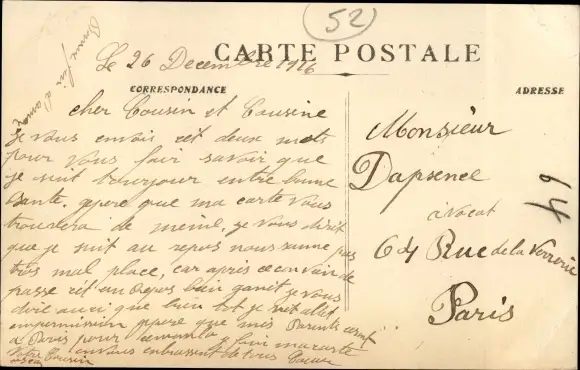 52
CARTE POSTALE
Le 26 Decembre 1916
CORRESPONDANCE
ADRESSE
cher Cousin et Cousine
Je vous envois cet deux mots
pour vous fair savoir que
je suit tourjour entre bonne
sante. jspere que ma carte vous
trouvera de meme, je vous dirit
que je suit au repos nous sanne pas
tros mal place, car apres ce on vien de
passe cet un repos bien ganet je vous
dire auci que bien tot je suit alet
en permission jspere que mis Parents seront
a Paris pour
je fini ma carte
en vous enbrassent de tous Coeur
Votre Cousin
Monsieur
Dapsence
avocat
64 Rue de la Verrerie
Paris
64